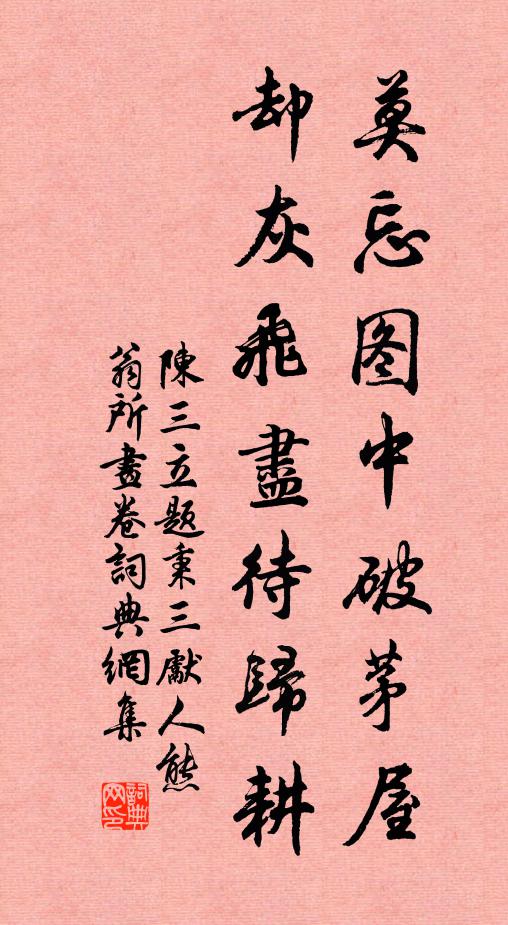 莫忘图中破茅屋
却灰飛盡待歸耕
陳三立题秉三獻人熊
翁所畫卷詞典網集
詞典网印